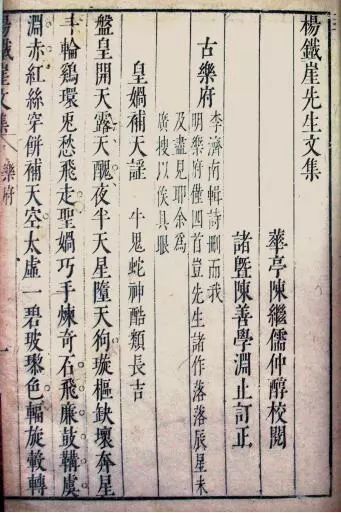 楊鐵崖先生文集
華亭陳繼儒仲醇校閱
諸暨陳善學淵止訂正
古樂府
李濟南輯詩刪而我
明樂府僅四首豈先生諸作落落辰星未
及盡見耶余為
廣搜以俟具眼
皇媧補天謡 牛鬼蛇神酷類長吉
盤皇開天露天醜夜半天星墮天狗璇樞缺壞奔星
斗輪鷄環兎愁飛走聖媧巧手煉奇石飛廉鼓鞲虞
淵赤紅絲穿餅補天空太虛一碧玻瓈色輻旋轂轉
楊鐵崖文集 樂府